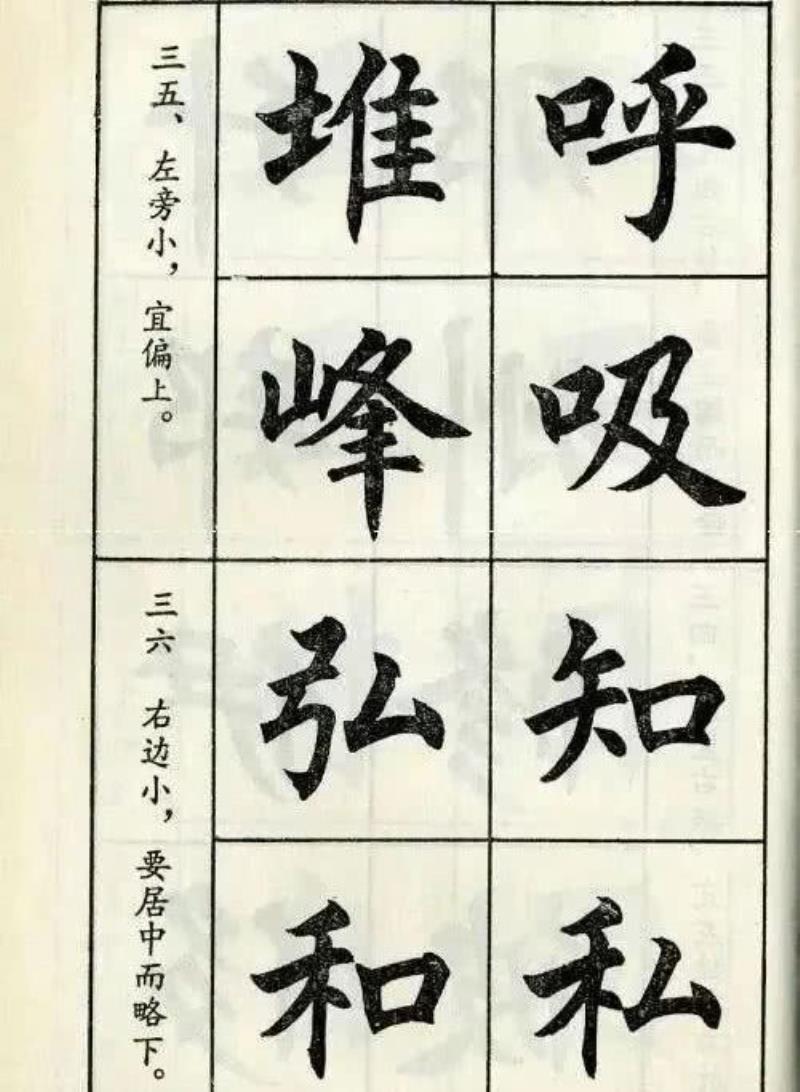 呼吸
堆峰
三五、左旁小，宜偏上。
知私
弘和
三六 右边小，要居中而略下。